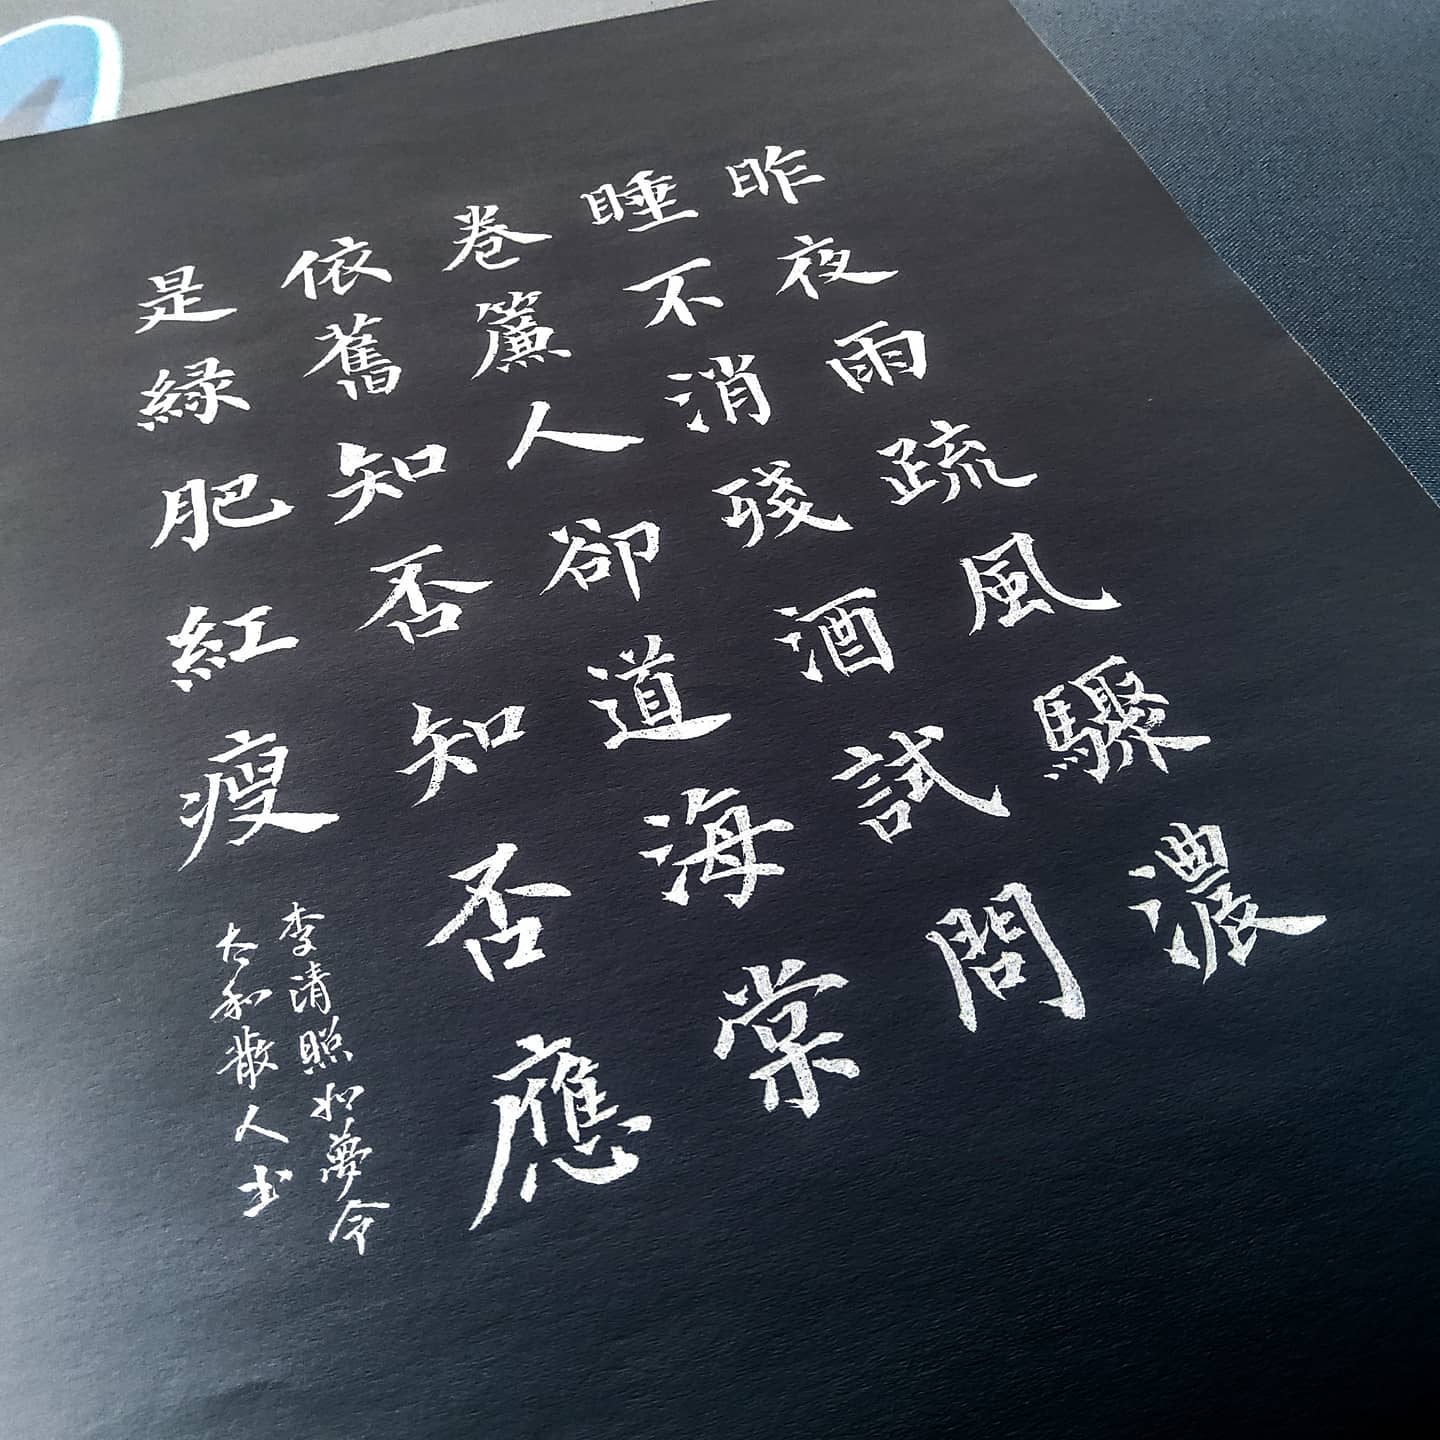 昨夜雨疏風驟濃
睡不消殘酒試問
卷簾人卻道海棠
依舊知否知否應
是緑肥紅瘦
李清照如夢令
太和散人书